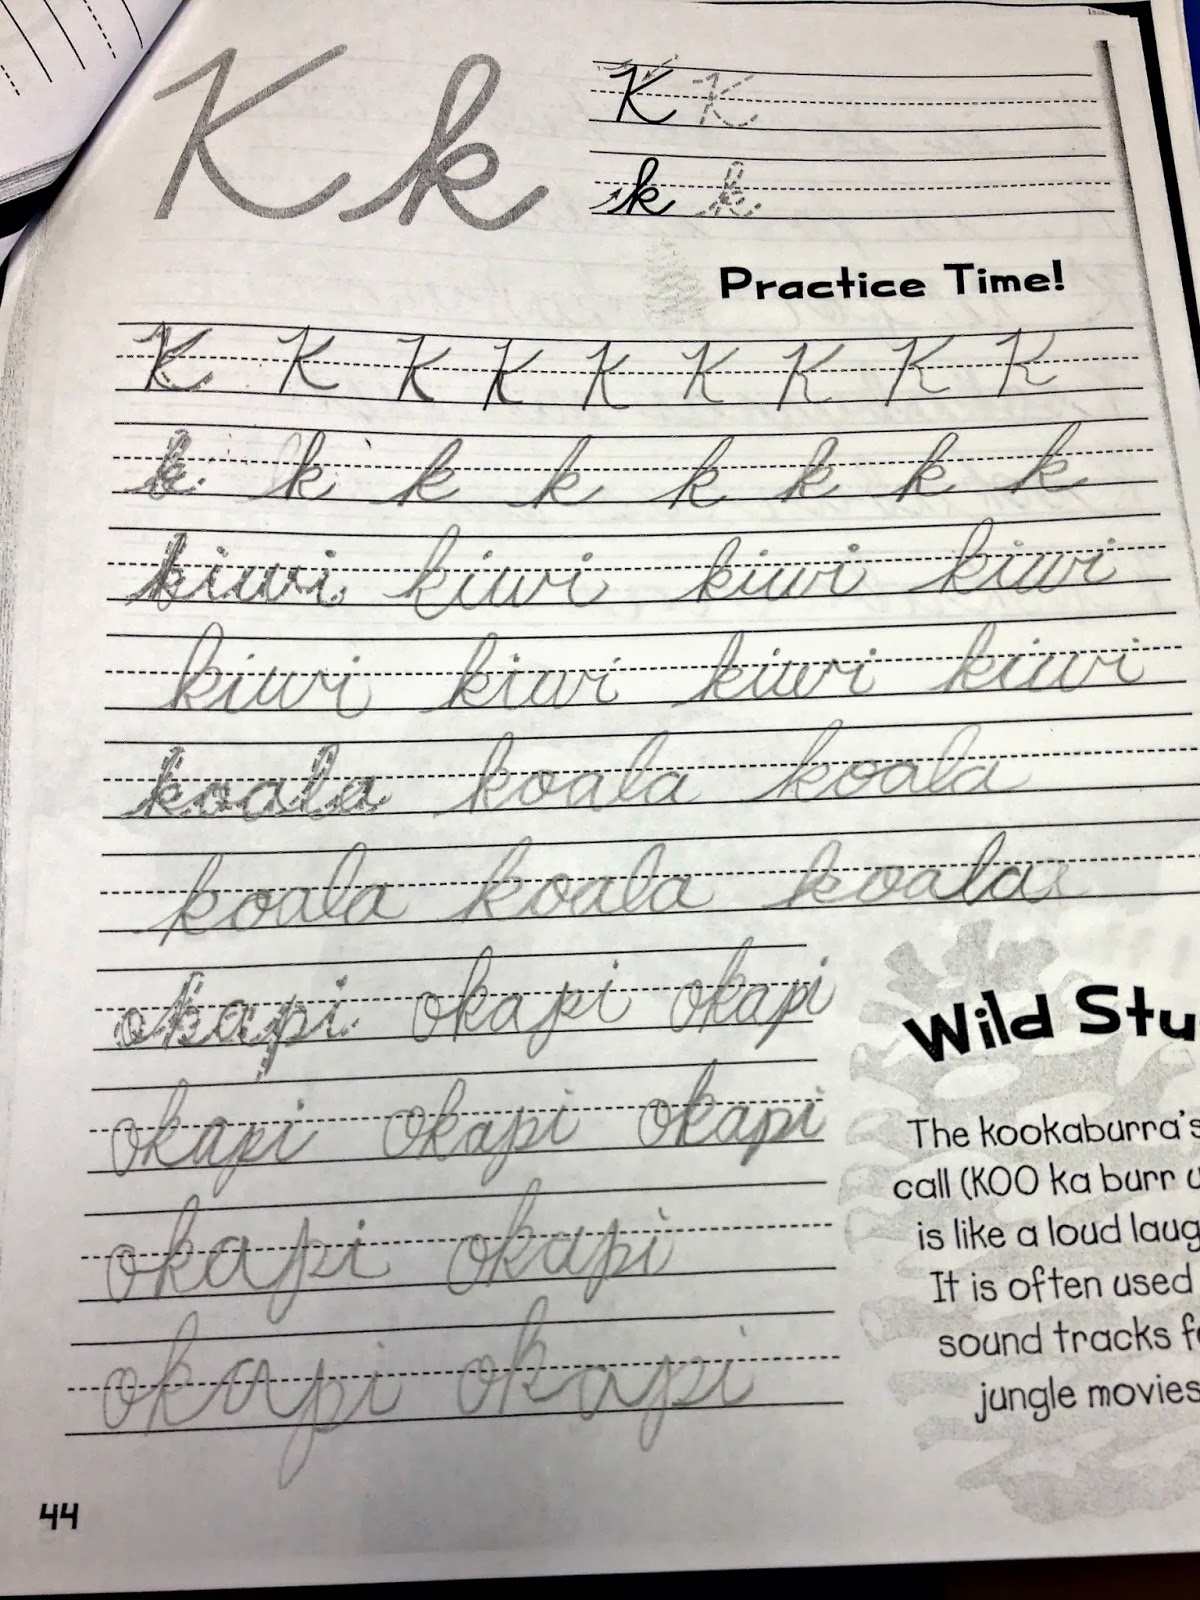 K k
K K
k k
Practice Time!
K K K K K K K K K
k k k k k k k k
kiwi kiwi kiwi kiwi
kiwi kiwi kiwi kiwi
koala koala koala
koala koala koala
okapi okapi okapi
okapi okapi okapi
okapi okapi
okapi okapi
Wild Stu
The kookaburra's
call (KOO ka burr u
is like a loud laug
It is often used
sound tracks fo
jungle movies
44